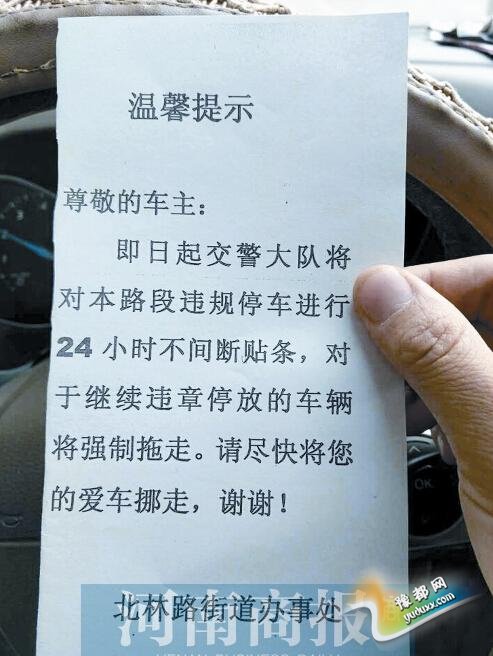 温馨提示
尊敬的车主：
即日起交警大队将
对本路段违规停车进行
24 小时不间断贴条，对
于继续违章停放的车辆
将强制拖走。请尽快将您
的爱车挪走，谢谢！
北林路街道办事处
河南商报
豫都网
yuduxx.com
OK